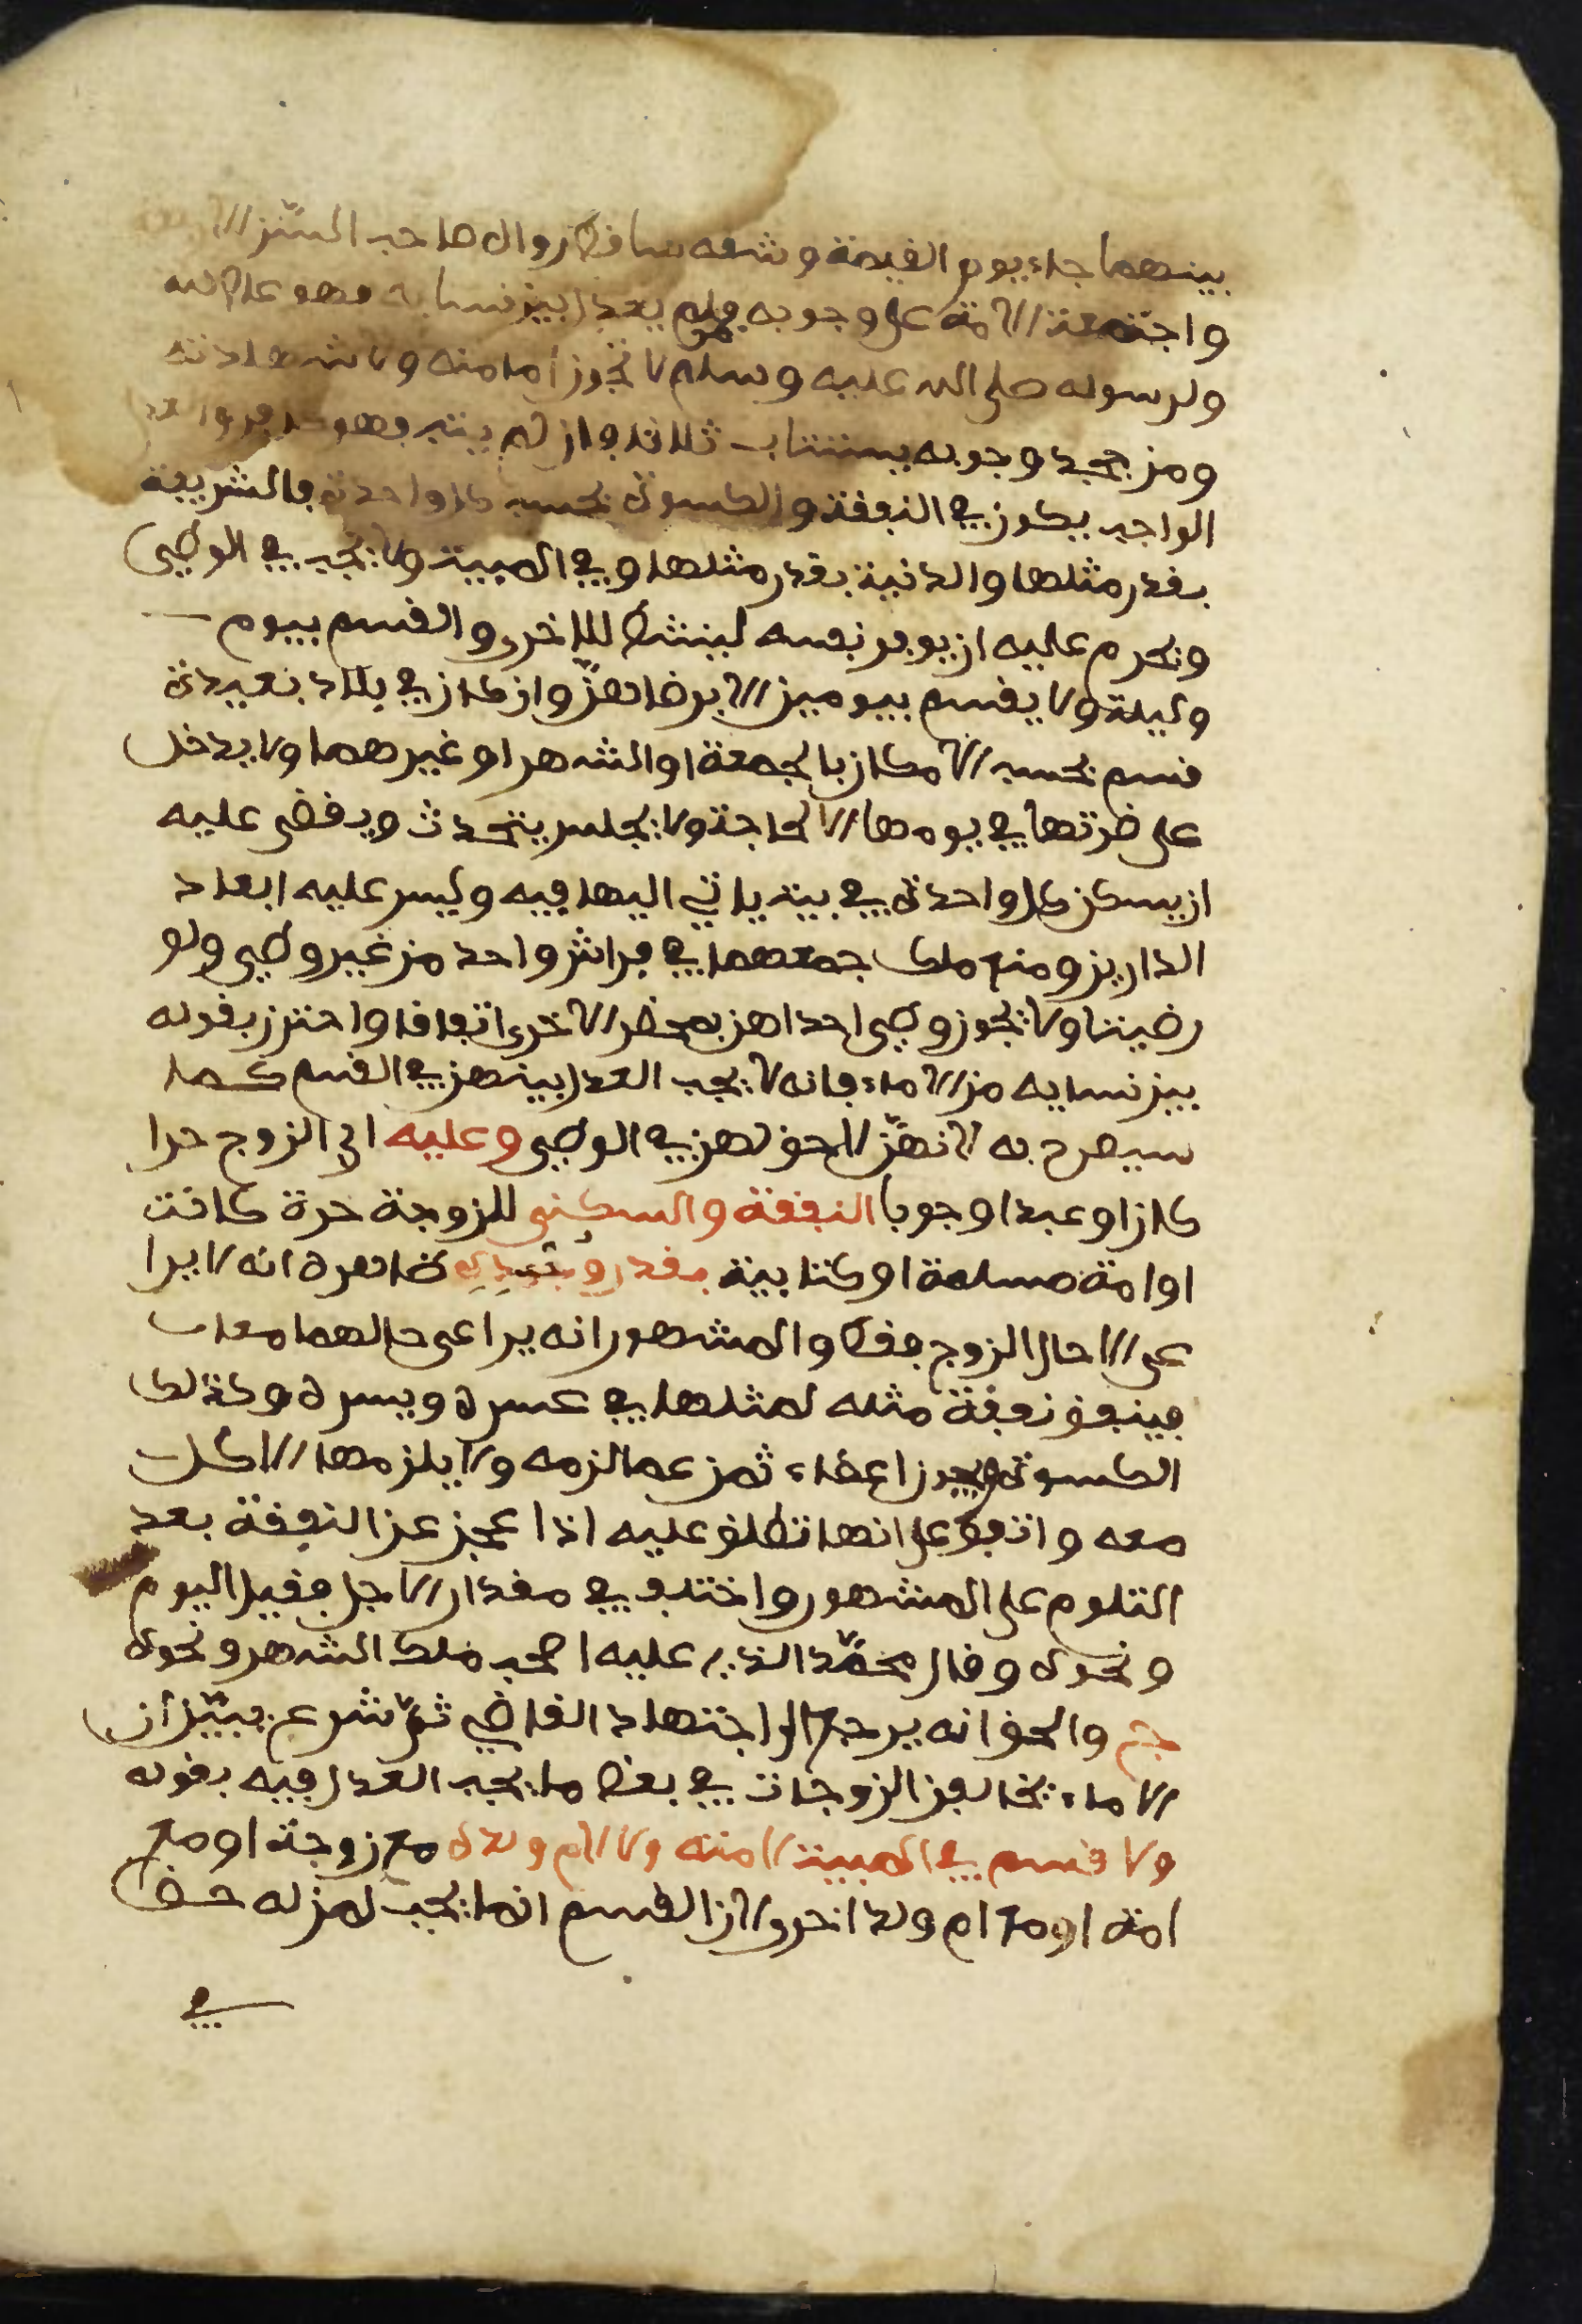 بينهما جاء يوم القيمة وشقه ساقط رواه صاحب السنن الا
واجتمعت الامة على وجوبه فمن لم يعدل بين نسايه فهو عاص لله
ولرسوله صلى الله عليه وسلم لا تجوز امامته ولا شهادته
ومن جحد وجوبه يستتاب ثلاثا فان لم يتب فهو كافر والعدل
الواجب يكون في النفقة والكسوة بحسب كل واحدة فالشريفة
بقدر مثلها والدنية بقدر مثلها وفي المبيت ولا يجب في الوطي
ويحرم عليه ان يوفر نفسه لينشط للاخرى والقسم بيوم
وليلة ولا يقسم بيومين الا برضاهنّ وان كان في بلاد بعيدة
قسم بحسب الامكان بالجمعة او الشهر او غيرهما ولا يدخل
على ضرتها في يومها الا لحاجة ولا يجلس يتحدث ويقضى عليه
ان يسكن كل واحدة في بيت ياتي اليها فيه وليس عليه ابعاد
الدارين ومنع ملك جمعهما في فراش واحد من غير وطي ولو
رضيتا ولا يجوز وطي احداهن بمحضر الاخرى اتفاقا واحترز بقوله
بين نسايه من الاماء فانه لا يجب العدل بينهن في القسم كما
سيصرح به لانهنّ لا حق لهن في الوطي وعليه اي الزوج حرا
كان او عبدا وجوبا النفقة والسكنى للزوجة حرة كانت
او امة مسلمة او كتابية بقدر وجده ظاهره انه لا يرا
عى الا حال الزوج فقط والمشهور انه يراعى حالهما معا
فينفق نفقة مثله لمثلها في عسره ويسره وكذلك
الكسوة ويجوز اعطاء ثمن عما لزمه ولا يلزمها الاكل
معه واتفق على انها تطلق عليه اذا عجز عن النفقة بعد
التلوم على المشهور واختلف في مقدار الاجل فقيل اليوم
ونحوه وقال محمّد الذي عليه اصحب ملك الشهر ونحوه
جم والحق انه يرجع الى اجتهاد القاضي ثمّ شرع يبيّن أن
الاماء يخالفن الزوجات في بعض ما يجب العدل فيه بقوله
ولا قسم في المبيت لامته ولا لام ولده مع زوجة او مع
امة او مع ام ولد اخرى لان القسم انما يجب لمن له حظ
في